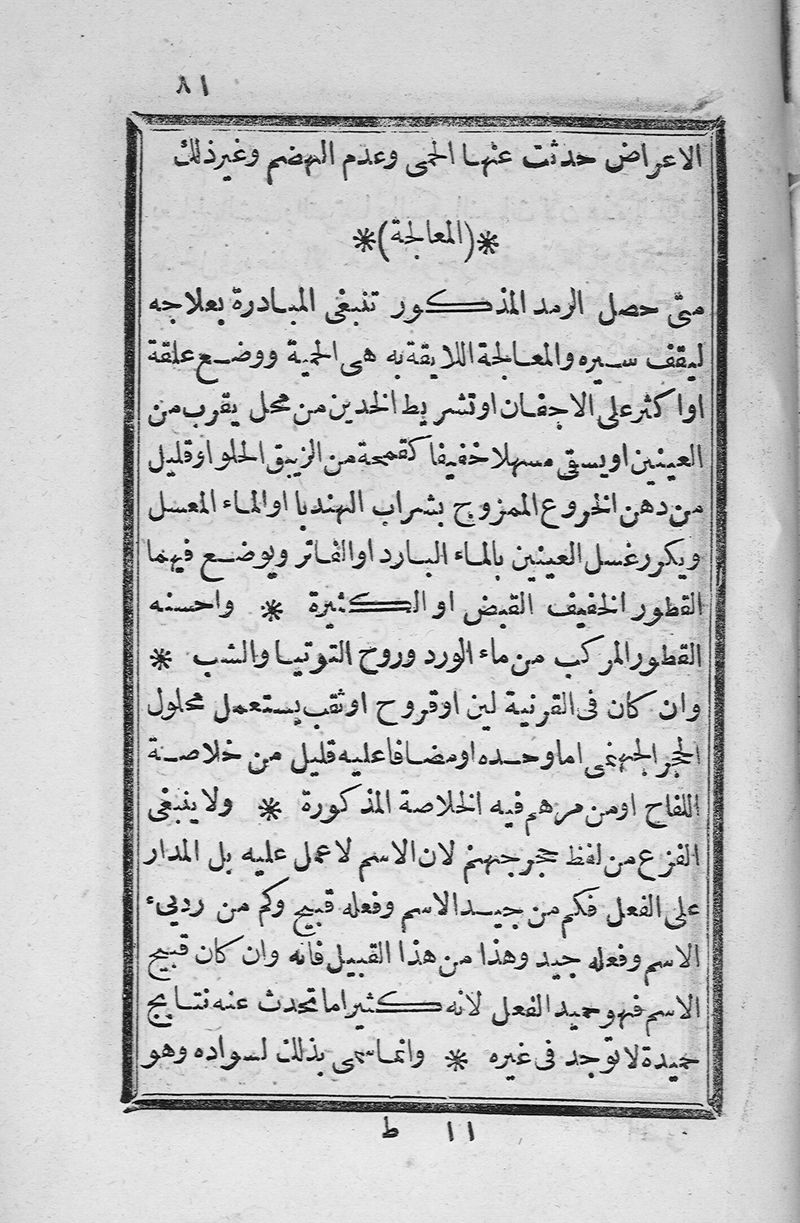 ٨١
الاعراض حدثت عنها الحمى وعدم الهضم وغير ذلك
*(المعالجة)*
متى حصل الرمد المذكور تنبغى المبادرة بعلاجه
ليقف سيره والمعالجة اللايقة به هى الحمية ووضع علقة
او اكثر على الاجفان او تشريط الخدين من محل يقرب من
العينين او يسقى مسهلا خفيفا كقمحة من الزيبق الحلو او قليل
من دهن الخروع الممزوج بشراب الهندبا او الماء المعسل
ويكرر غسل العينين بالماء البارد او الفاتر ويوضع فيهما
القطور الخفيف القبض او الكثيرة * واحسنه
القطور المركب من ماء الورد وروح التوتيا والشب *
وان كان فى القرنية لين او قروح او ثقب يستعمل محلول
الحجر الجهنمى اما وحده او مضافا عليه قليل من خلاصة
اللفاح او من مرهم فيه الخلاصة المذكورة * ولا ينبغى
الفزع من لفظ حجر جهنم لان الاسم لا عمل عليه بل المدار
على الفعل فكم من جيد الاسم وفعله قبيح وكم من رديء
الاسم وفعله جيد وهذا من هذا القبيل فانه وان كان قبيح
الاسم فهو حميد الفعل لانه كثيرا ما تحدث عنه نتايج
حميدة لا توجد فى غيره * وانما سمى بذلك لسواده وهو
١١ ط